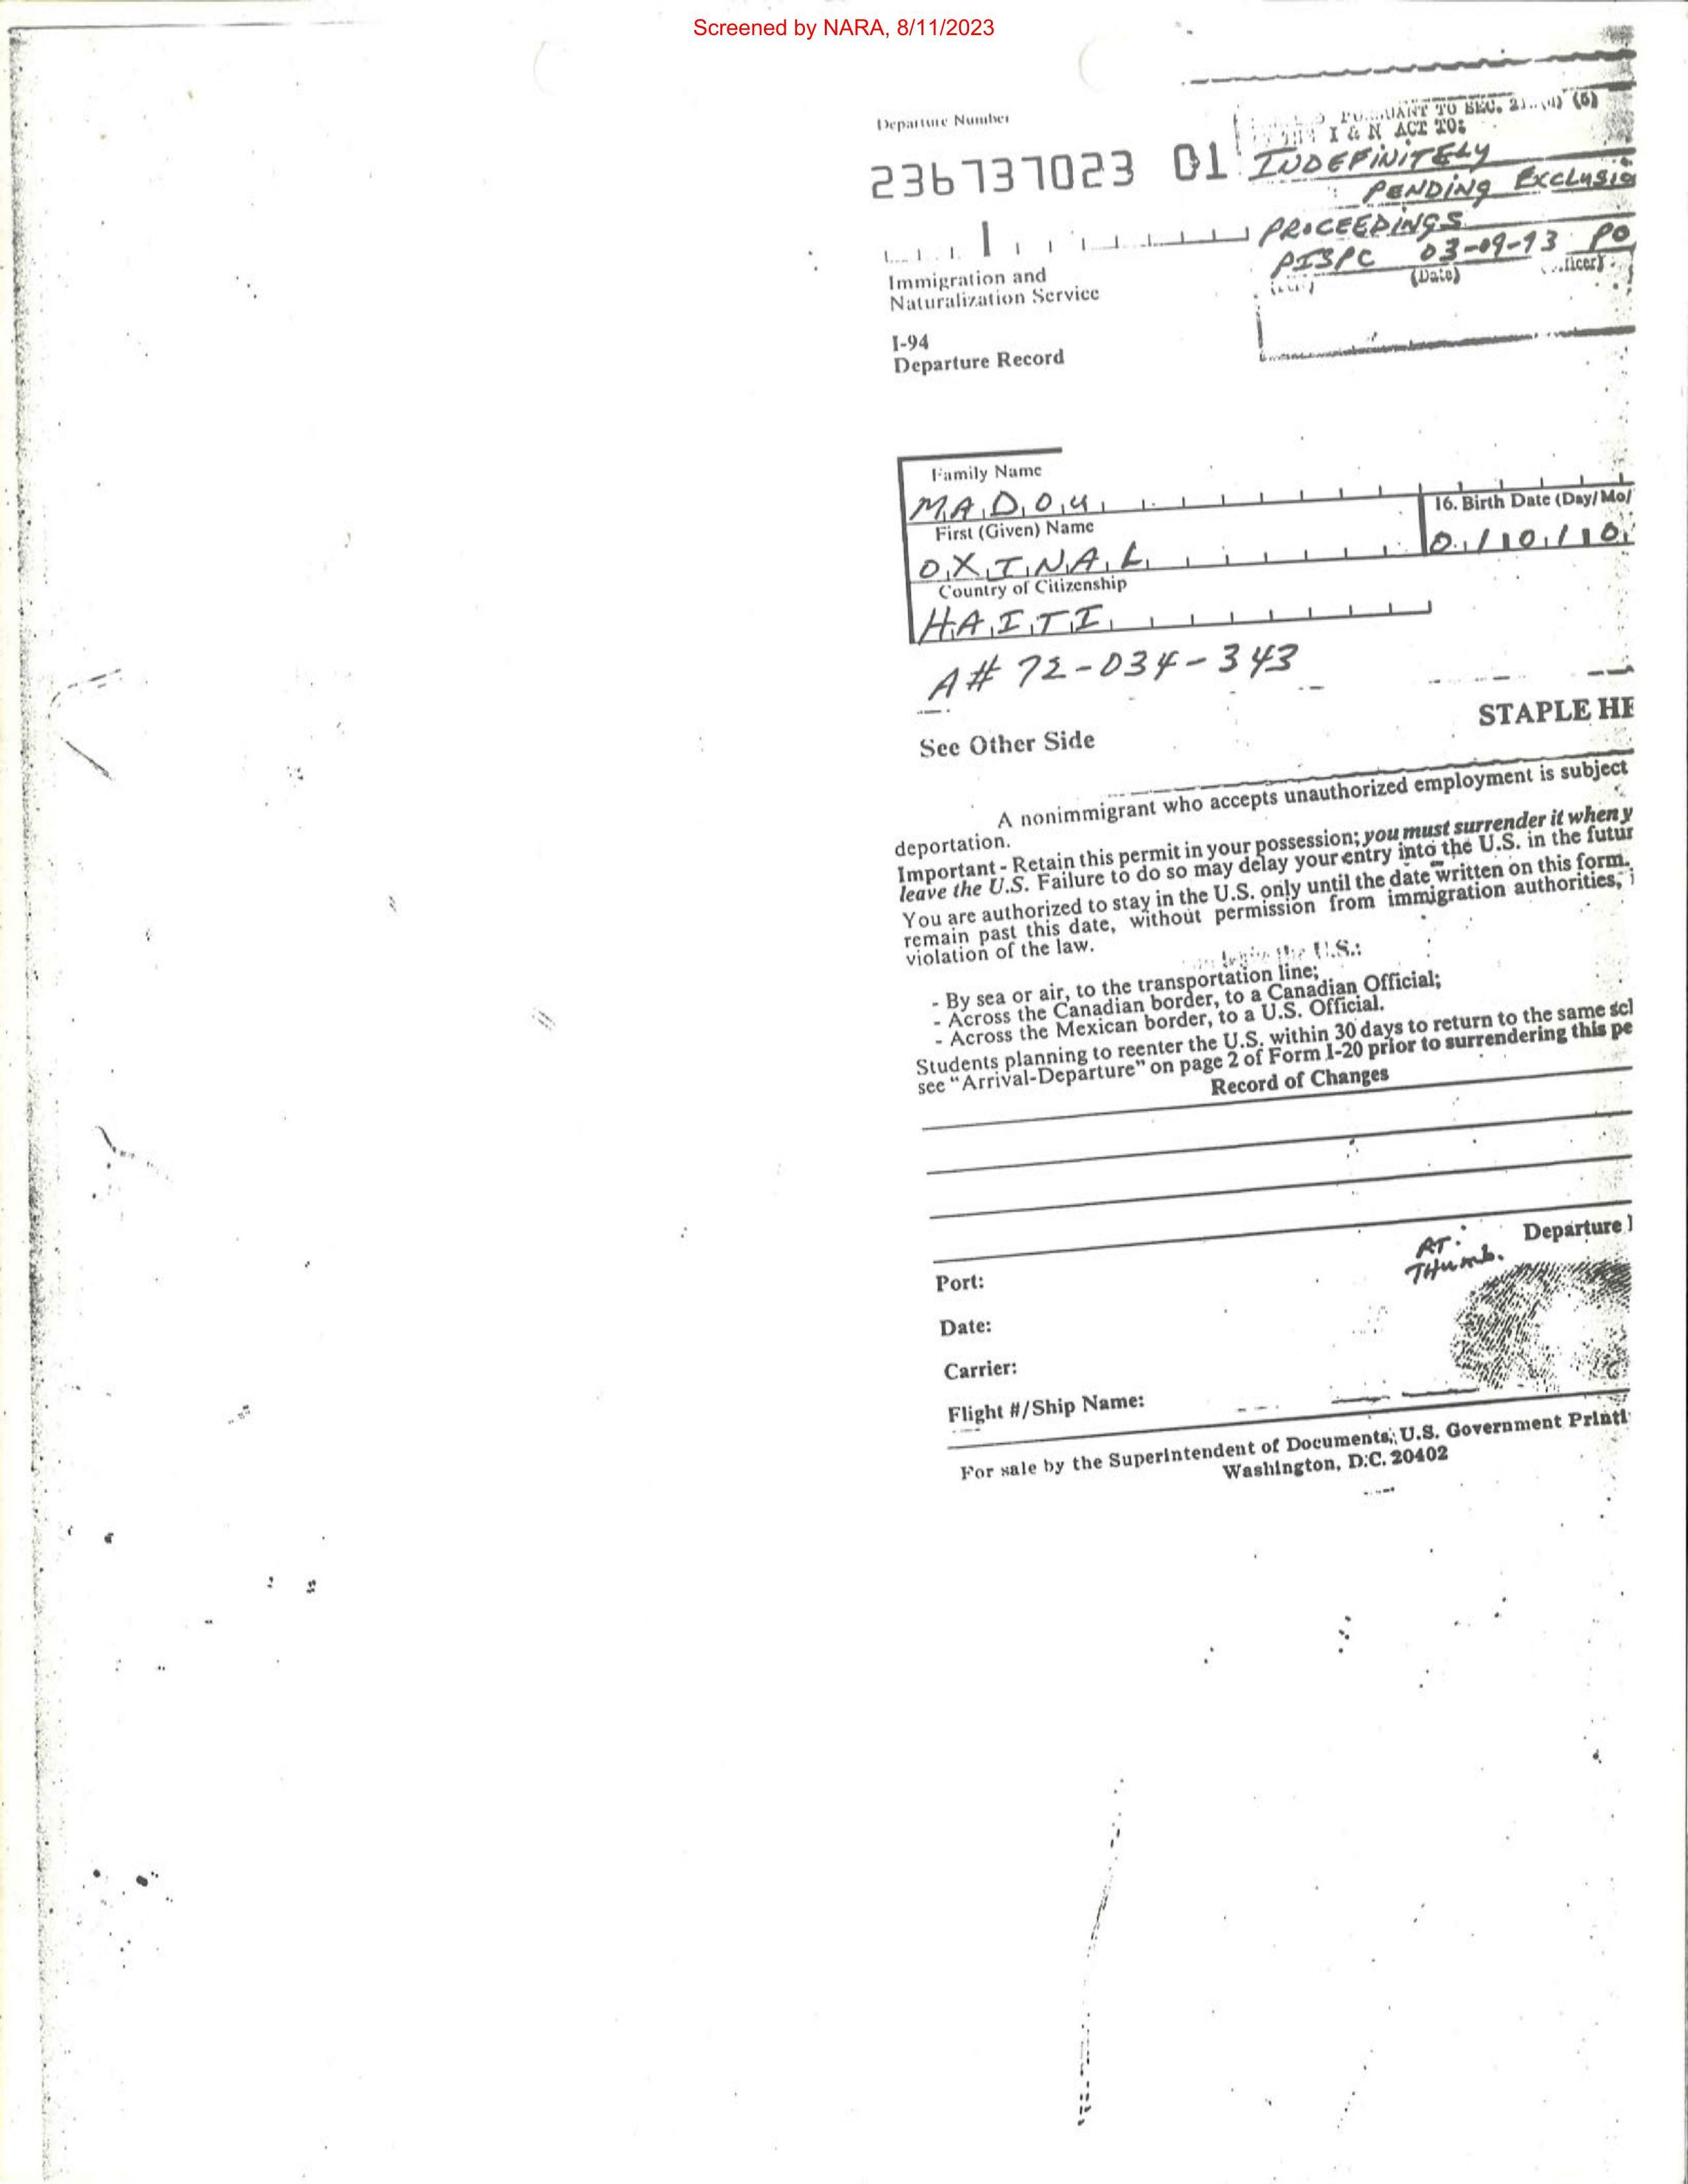 Screened by NARA, 8/11/2023
Departure Number
236737023 01
TO SEC.
I & N ACT TO:
INDEFINITELY
PENDING
PROCEEDINGS
03-09-93
(Date)
Immigration and
Naturalization Service
I-94
Departure Record
Family Name
MADOU
First (Given) Name
16. Birth Date (Day/Mo/
OXINAL
Country of Citizenship
HAITI
A# 72-034-343
See Other Side
STAPLE
A nonimmigrant who accepts unauthorized employment is subject
deportation.
Important - Retain this permit in your possession; you must surrender it when y
leave the U.S. Failure to do so may delay your entry into the U.S. in the futur
You are authorized to stay in the U.S. only until the date written on this form.
remain past this date, without permission from immigration authorities, i
violation of the law.
the U.S.:
- By sea or air, to the transportation line;
- Across the Canadian border, to a Canadian Official;
- Across the Mexican border, to a U.S. Official.
Students planning to reenter the U.S. within 30 days to return to the same scl
see "Arrival-Departure" on page 2 of Form I-20 prior to surrendering this pe
Record of Changes
Departure
RT.
THumb.
Port:
Date:
Carrier:
Flight #/Ship Name:
For sale by the Superintendent of Documents, U.S. Government Printi
Washington, D.C. 20402